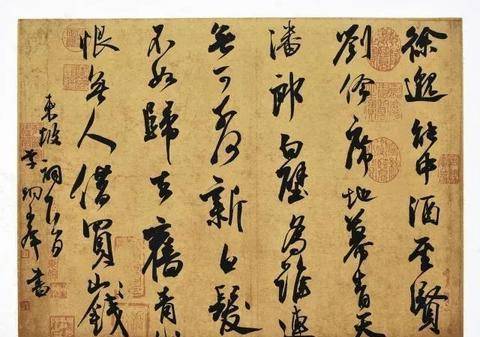 徐邈能中酒聖賢
劉伶席地幕青天
潘郎白璧為誰連
無可奈何新白髮
不如歸去舊青山
恨無人借買山錢
東坡詞
李 書